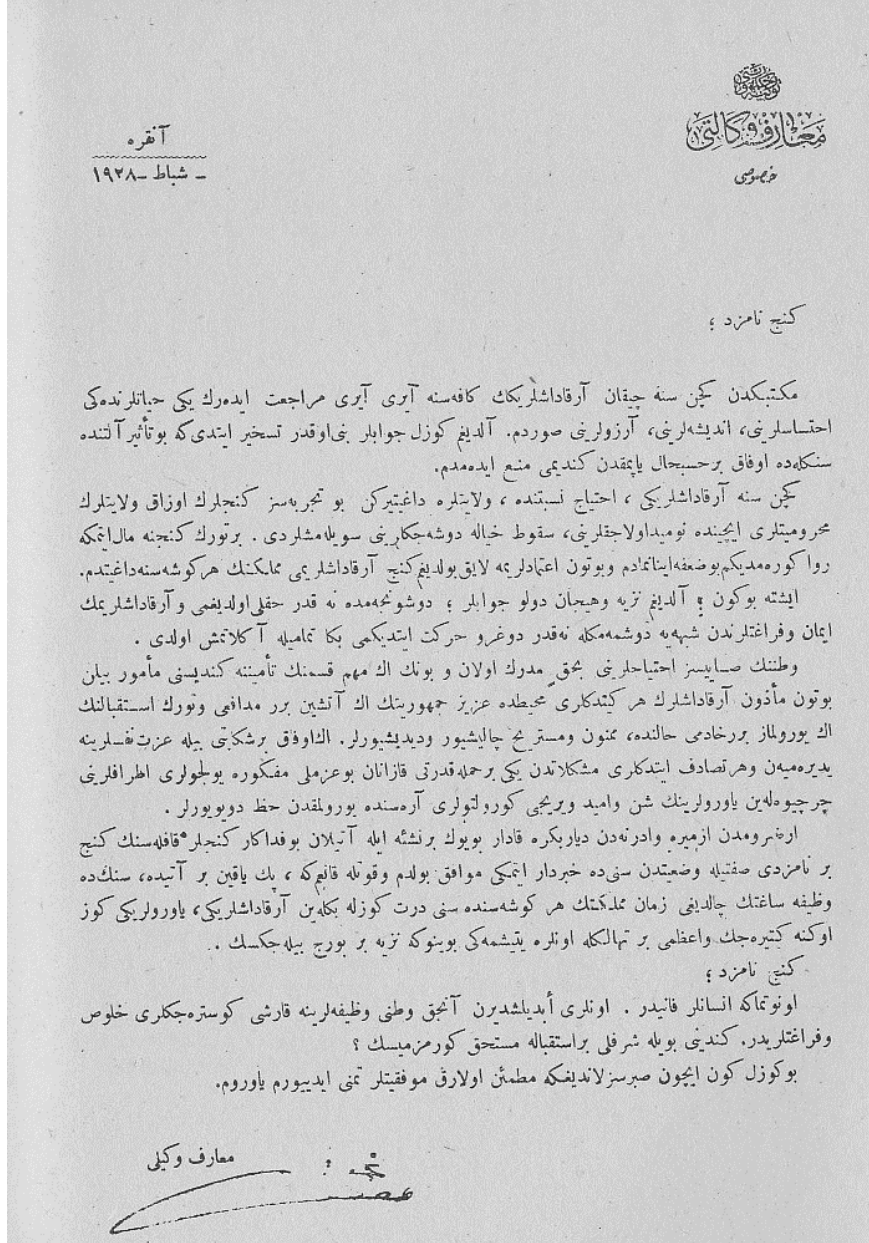 تورکیه جمهوریتی
معارف وکالتی
خصوصی
آنقره
ـ شباط ـ ۱۹۲۸
کنج نامزد ؛
مکتبکدن کچن سنه چیقان آرقاداشلریکك کافه‌سنه آیری آیری مراجعت ایده‌رك یکی حیاتلرنده‌کی
احتساسلرینی، اندیشه‌لرینی، آرزولرینی صوردم. آلدیغم کوزل جوابلر بنی‌اوقدر تسخیر ایتدی‌که بوتأثیر آلتنده
سنکله‌ده اوفاق برحسبحال یاپمقدن کندیمی منع ایده‌مدم.
کچن سنه آرقاداشلریکی ، احتیاج نسبتنده ، ولایتلره داغیتیرکن بو تجربه‌سز کنجلرك اوزاق ولایتلرك
محرومیتلری ایچینده نومیداولاجقلرینی، سقوط خیاله دوشه‌جکلرینی سویله‌مشلردی . برتورك کنجنه مال‌ایتمکه
روا کوره‌مدیکم‌بوضعفه‌اینانمادم وبوتون اعتمادلریمه لایق‌بولدیغم‌کنج آرقاداشلریمی مملکتك هرکوشه‌سنه‌داغیتدم.
ایشته بوکون ؛ آلدیغم نزیه وهیجان دولو جوابلر ؛ دوشونجه‌مده نه قدر حقلی‌اولدیغمی و آرقاداشلریمك
ایمان وفراغتلرندن شبهه‌یه دوشمه‌مکله نه‌قدر دوغرو حرکت ایتدیکمی بکا تمامیله آکلاتمش اولدی .
وطننك صاییسز احتیاجلرینی بحق مدرك اولان و بونك اك مهم قسمنك تأمیننه کندیسنی مأمور بیلن
بوتون مأذون آرقاداشلرك هر کیتدکلری محیطده عزیز جمهوریتك اك آتشین برر مدافعی وتورك استقبالنك
اك یورولماز بررخادمی حالنده، ممنون ومستریح چالیشیور ودیدیشیورلر. اك‌اوفاق برشکایتی بیله عزت‌نفسلرینه
یدیره‌مین وهرتصادف ایتدکلری مشکلاتدن یکی برحمله‌قدرتی قازانان بوعزملی مفکوره یولجولری اطرافلرینی
چرچیوه‌له‌ین یاورولرینك شن وامید ویریجی کورولتولری آره‌سنده یورولمقدن حظ دویویورلر .
ارضرومدن ازمیره وادرنه‌دن دیاربکره قادار بویوك برنشئه ایله آتیلان بوفداکار کنجلر قافله‌سنك کنج
بر نامزدی صفتیله وضعیتدن سنی‌ده خبردار ایتمکی موافق بولدم وقوتله قانعم‌که ، پك یاقین بر آتیده، سنك‌ده
وظیفه ساعتك چالدیغی زمان مملکتك هر کوشه‌سنده سنی درت کوزله بکله‌ین آرقاداشلریکی، یاورولریکی کوز
اوکنه کتیره‌جك واعظمی بر تهالکله اونلره یتیشمه‌کی بوینوکه نزیه بر بورج بیله‌جکسك .
کنج نامزد ؛
اونوتماکه انسانلر فانیدر . اونلری أبدیلشدیرن آنجق وطنی وظیفه‌لرینه قارشی کوستره‌جکلری خلوص
وفراغتلریدر. کندینی بویله شرفلی براستقباله مستحق کورمزمیسك ؟
بوکوزل کون ایچون صبرسزلاندیغکه مطمئن اولارق موفقیتلر تمنی ایدییورم یاوروم.
معارف وکیلی